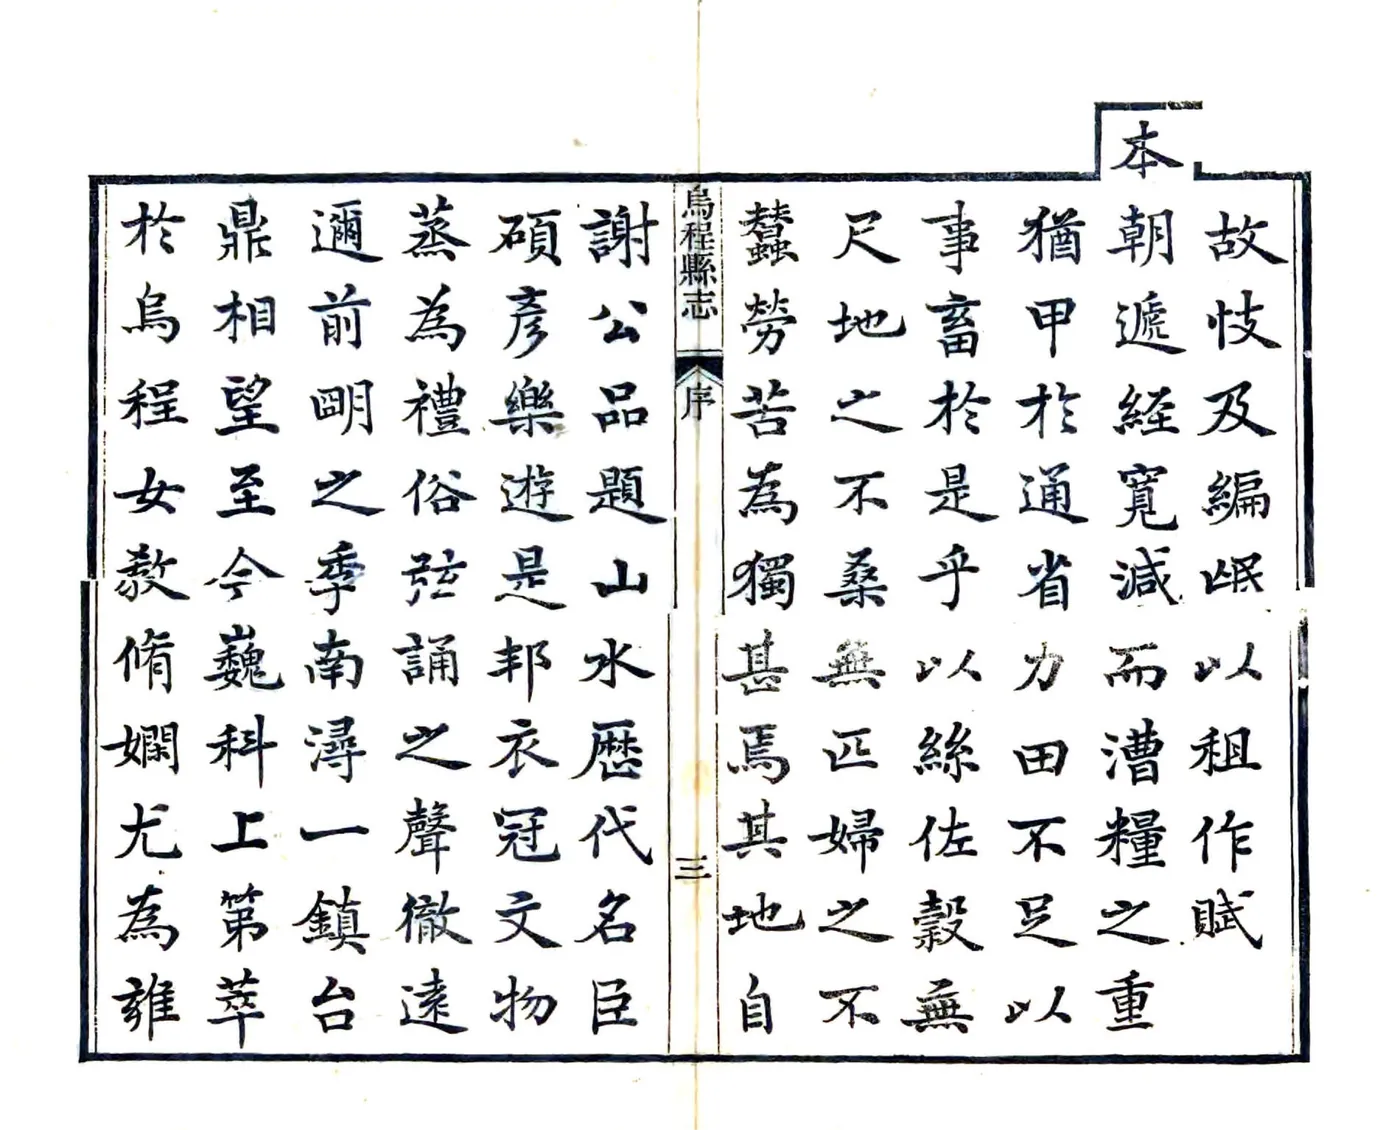 故忮及編氓以租作賦
本朝遞經寬減而漕糧之重
猶甲於通省力田不足以
事畜於是乎以絲佐穀無
尺地之不桑無匹婦之不
蠶勞苦為獨甚焉其地自
烏程縣志 序 三
謝公品題山水歷代名臣
碩彥樂遊是邦衣冠文物
蒸為禮俗弦誦之聲徹遠
邇前明之季南潯一鎮台
鼎相望至今巍科上第萃
於烏程女教脩嫻尤為雍